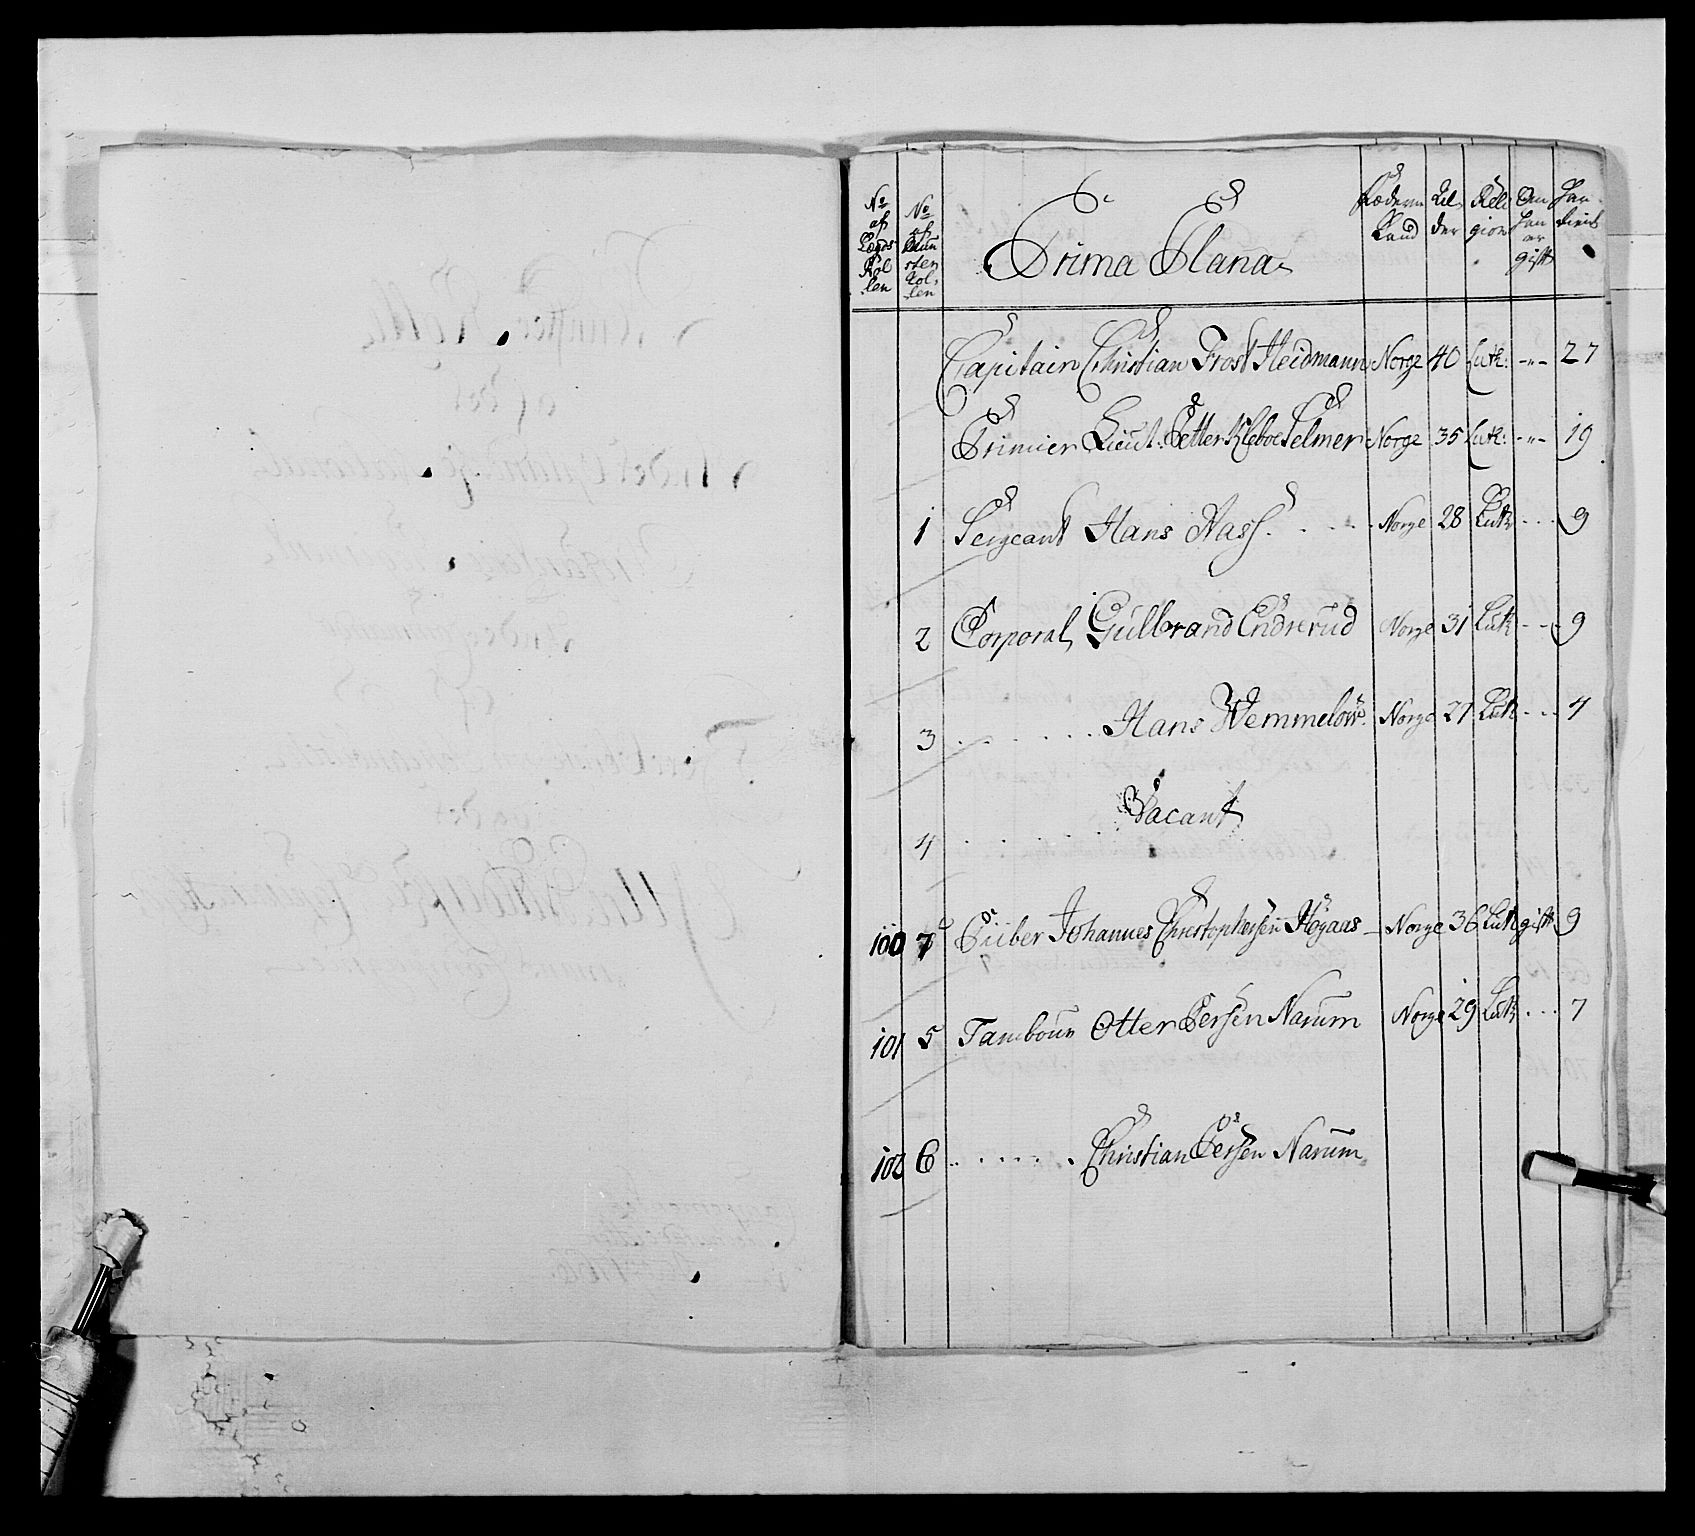 No af Lægds Rollen
No af Munsterrollen
Prima Plana
Fæderne Land
Alder
Religion
Om han er gift
har tient
Capitain Christian Frost Heidmann Norge 40 Luth: -"- 27
Primier Lieut: Petter Kleboe Selmer Norge 35 Luth: -"- 19
1 Sergeant Hans Hass. . . . . Norge 28 Luth . . . 9
2 Corporal Gulbrand Endrerud Norge 31 Luth - - - 9
3 . . . . . . Hans Wemmelow Norge 27 Luth . . . 4
4 . . . . . . Vacant
100 7 Piiber Johannes Christophersen Høgaas – Norge 36 Luth gift 9
101 5 Tambour Otter Persen Narum Norge 29 Luth . . . 7
102 6 . . . . . . Christian Persen Narum